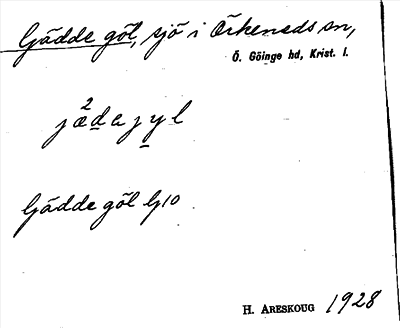 Gädde göl, sjö i Örkeneds sn,
Ö. Göinge hd, Krist. l.
2
jædajyl
Gädde göl G10
H. ARESKOUG 1928